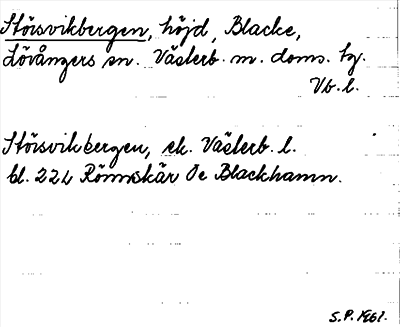 Störsvikbergen, höjd, Blacke,
Lövångers sn. Västerb. m. doms. tg.
Vb. l.
Störsvikbergen, ek. Västerb. l.
bl. 22L Rönnskär Oc Blackhamn.
S.P. 1961.